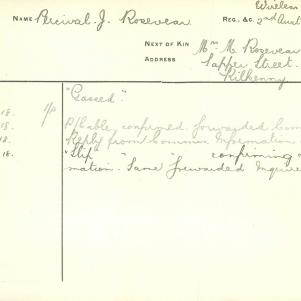 Wireless
NAME Percival. J. Rosevear REG. &C. 2nd Aust
NEXT OF KIN Mrs M. Rosevear
ADDRESS Sapper Street.
Kilkenny
"Gassed".
18. P/Cable confirmed forwarded
18. Reply from Common Information
18. "Slip" " " confirming
mation. Same forwarded Inquire